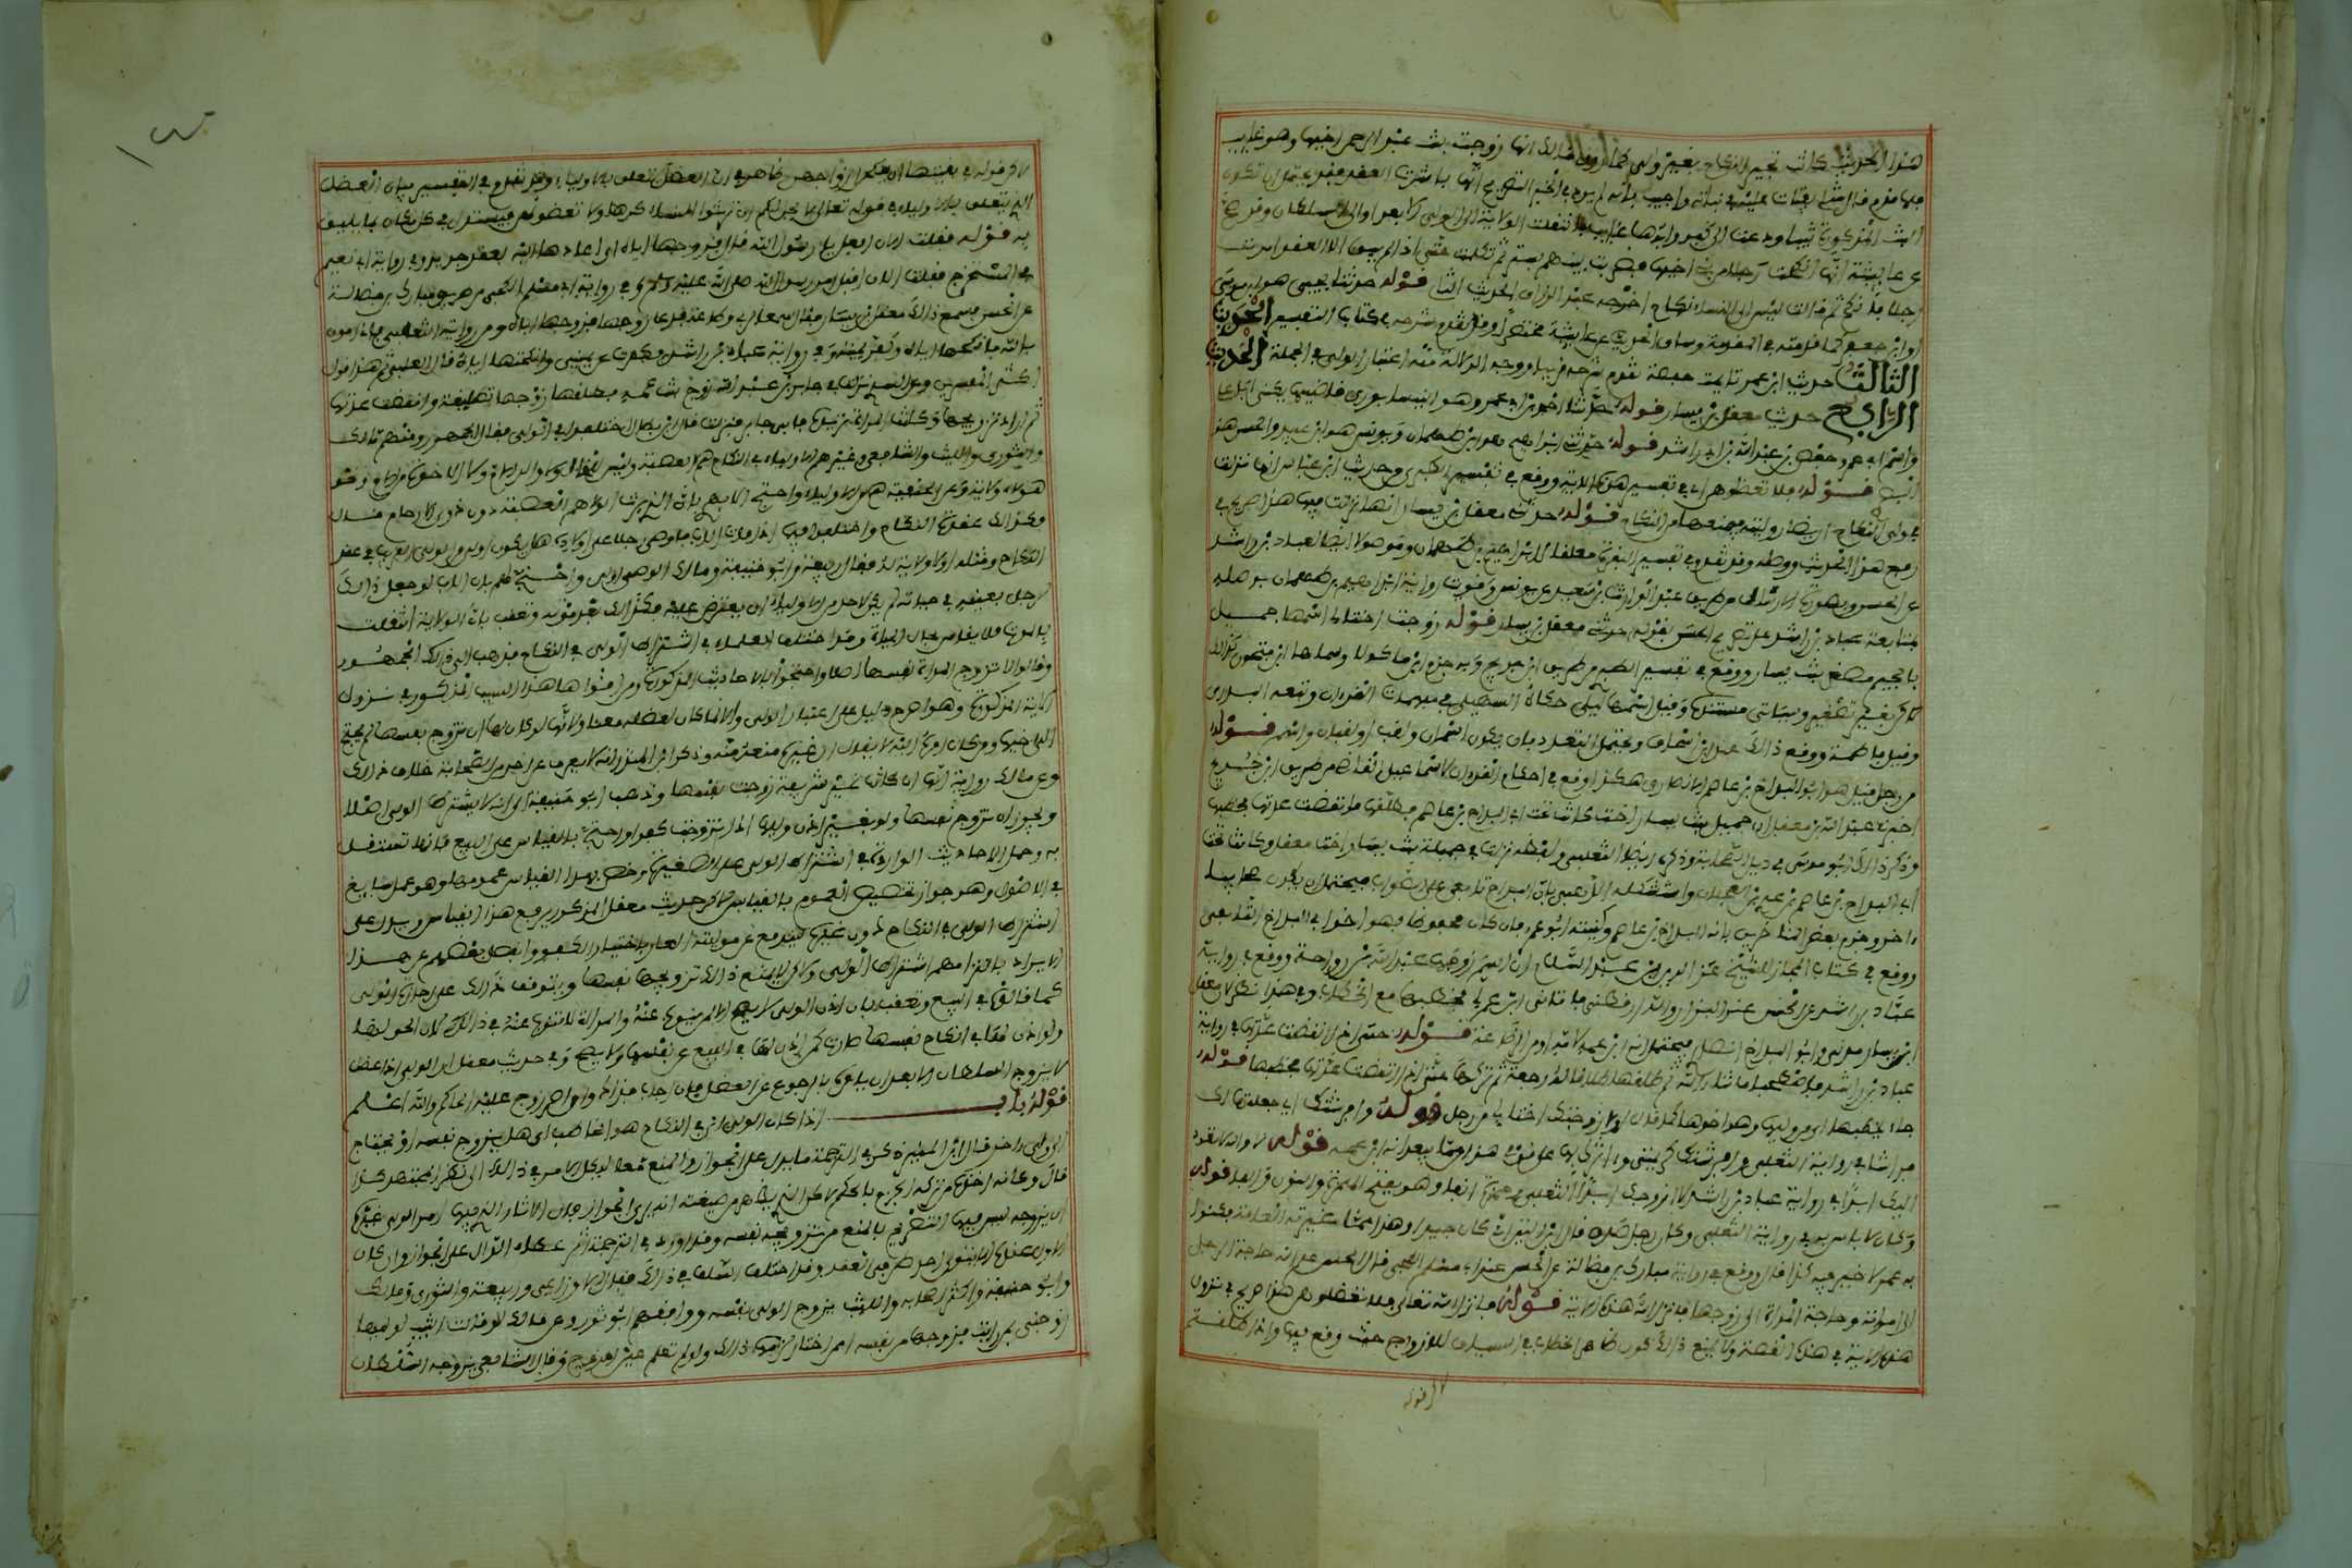 هذا الحديث كانت تجيز النكاح بغير ولي كما روى مالك انها زوجت بنت عبد الرحمن اخيها وهو غايب
فلما قدم قال مثلي يفتات عليه في بناته واجيب بانه لم يرد في الخبر التصريح انها باشرت العقد فقد يحتمل ان تكون
البنت المذكورة ثيبا ودعت الى كفو وابوها غايب فانتقلت الولاية الى الولي الابعد او الى السلطان وقد صح
عن عايشة انها انكحت رجلا من بني اخيها فضربت بينهم بستر ثم تكلمت حتى اذا لم يبق الا العقد امرت
رجلا فانكح ثم قالت ليس الى النساء نكاح اخرجه عبد الرزاق الحديث الثاني قوله حدثنا يحيى هو ابن موسى
او ابن جعفر كما قدمته في المقدمة وساق الحديث عن عايشة مختصرا وقد تقدم شرحه في كتاب التفسير الحديث
الثالث حديث ابن عمر تايمت حفصة تقدم شرحه قريبا ووجه الدلالة منه اعتبار الولي في الجملة الحديث
الرابع حديث معقل بن يسار قوله حدثنا احمد بن ابي عمرو هو النيسابوري قاضيها يكنى ابا علي
واسم ابي عمرو حفص بن عبد الله بن راشد قوله حدثني ابراهيم هو ابن طهمان ويونس هو ابن عبيد والحسن هو
البصري قوله فلا تعضلوهن اي في تفسير هذه الاية ووقع في تفسير الطبري من حديث ابن عباس انها نزلت
في ولي النكاح ان يضار وليته فيمنعها من النكاح قوله حدثني معقل بن يسار انها نزلت فيه هذا صريح في
رفع هذا الحديث ووصله وقد تقدم في تفسير البقرة معلقا لابراهيم بن طهمان وموصولا ايضا لعباد بن راشد
عن الحسن وبصورة الارسال من طريق عبد الوارث بن سعيد عن يونس وقويت رواية ابراهيم بن طهمان بوصله
بمتابعة عباد بن راشد على تصريح الحسن بقوله حدثني معقل بن يسار قوله زوجت اختا لي اسمها جميل
بالجيم مصغر بنت يسار ووقع في تفسير الطبري من طريق ابن جريج وبه جزم ابن ماكولا وسماها ابن فتحون كذلك
لكن بغير تصغير وسياتي مستنده وقيل اسمها ليلى حكاه السهيلي في مبهمات القران وتبعه البدري
وقيل فاطمة ووقع ذلك عند ابن اسحاق ويحتمل التعدد بان يكون لها اسمان ولقب او لقبان واسم قوله
من رجل قيل هو ابو البداح بن عاصم الانصاري هكذا وقع في احكام القران لاسماعيل القاضي من طريق ابن جريج
اخبرني عبد الله بن معقل ان جميل بنت يسار اخت معقل كانت تحت ابي البداح بن عاصم فطلقها فانقضت عدتها فخطبها
وذكر ذلك ابو موسى في ذيل الصحابة وذكره ايضا الثعلبي ولفظه نزلت في جميلة بنت يسار اخت معقل وكانت تحت
ابي البداح بن عاصم بن عدي بن العجلان واستشكله الذهبي بان البداح تابعي على الصواب فيحتمل ان يكون صحابيا
اخر وجزم بعض المتاخرين بانه البداح بن عاصم وكنيته ابو عمرو فان كان محفوظا فهو اخو ابي البداح التابعي
ووقع في كتاب المجاز للشيخ عز الدين بن عبد السلام ان اسم زوجها عبد الله بن رواحة ووقع في رواية
عباد بن راشد عن الحسن عند البزار والدارقطني فاتاني ابن عم لي فخطبها مع الخطاب وفي هذا نظر لان معقل
ابن يسار مزني وابو البداح انصاري فيحتمل انه ابن عمه لامه او من الرضاعة قوله حتى اذا انقضت عدتها في رواية
عباد بن راشد فاصطحبا ما شاء الله ثم طلقها طلاقا له رجعة ثم تركها حتى انقضت عدتها فخطبها قوله
جاء يخطبها اي من وليها وهو اخوها كما قال اولا زوجتك اختا لي من رجل قوله وافرشتك اي جعلتها لك
فراشا في رواية الثعلبي وافرشتك كريمتي واثرتك بها على قومي وهذا مما يبعد انه ابن عمه قوله لا والله لا تعود
اليك ابدا في رواية عباد بن راشد لا ازوجك ابدا زاد الثعلبي وحمزة انفا وهو بفتح الهمزة والنون والفا قوله
وكان لا باس به في رواية الثعلبي وكان رجل صدق قال ابن التين اي كان جيدا وهذا مما غيرته العامة فكنوا
به عمن لا خير فيه كذا قال ووقع في رواية مبارك بن فضالة عن الحسن عند ابي مسلم الكجي قال الحسن علم الله حاجة الرجل
الى امراته وحاجة المراة الى زوجها فانزل الله هذه الاية قوله فانزل الله تعالى فلا تعضلوهن هذا صريح في نزول
هذه الاية في هذه القصة ولا يمنع ذلك كون ظاهر الخطاب في السياق للازواج حيث وقع فيها واذا طلقتم
لكن قوله
١٣
لكن قوله في بقيتها ان ينكحن ازواجهن ظاهر في ان العضل يتعلق بالاولياء وقد تقدم في التفسير بيان العضل
الذي يتعلق بالاولياء في قوله تعالى لا يحل لكم ان ترثوا النساء كرها ولا تعضلوهن فيستدل في كل مكان بما يليق
به قوله فقلت الان افعل يا رسول الله قال فزوجها اياه اي اعادها اليه بعقد جديد وفي رواية ابي نعيم
في المستخرج فقلت الان اقبل امر رسول الله صلى الله عليه وسلم وفي رواية ابي مسلم الكجي من طريق مبارك بن فضالة
عن الحسن فسمع ذلك معقل بن يسار فقال سمعا لربي وطاعة فدعا زوجها فزوجها اياه ومن رواية الثعلبي فاني اومن
بالله فانكحها اياه وكفر يمينه وفي رواية عباد بن راشد فكفرت عن يميني وانكحتها اياه قال الثعلبي ثم هذا قول
اكثر المفسرين وعن السدي نزلت في جابر بن عبد الله زوج بنت عمه فطلقها زوجها تطليقة وانقضت عدتها
ثم اراد تزويجها وكانت المراة تريده فابى جابر فنزلت قال ابن بطال اختلفوا في الولي فقال الجمهور ومنهم مالك
والثوري والليث والشافعي وغيرهم الاولياء في النكاح هم العصبة وليس للخال ولا والد الام ولا الاخوة من الام ونحو
هولاء ولاية وعن الحنفية هم من الاولياء واحتج الابهري بان الذي يرث الولاء هم العصبة دون ذوي الارحام قال
فكذلك عقدة النكاح واختلفوا فيما اذا مات الاب فاوصى رجلا على اولاده هل يكون اولى من الولي القريب في عقد
النكاح او مثله او لا ولاية له فقال ربيعة وابو حنيفة ومالك الوصي اولى واحتج لهم بان الاب لو جعل ذلك
لرجل بعينه في حياته لم يكن لاحد من الاولياء ان يعترض عليه فكذلك بعد موته وتعقب بان الولاية انتقلت
بالموت فلا يقاس بحال الحياة وقد اختلف العلماء في اشتراط الولي في النكاح فذهب الى ذلك الجمهور
وقالوا لا تزوج المراة نفسها اصلا واحتجوا بالاحاديث المذكورة ومن اقواها هذا السبب المذكور في نزول
الاية المذكورة وهو اصرح دليل على اعتبار الولي والا لما كان لعضله معنى ولانها لو كان لها ان تزوج نفسها لم تحتج
الى اخيها ومن كان امره اليه لا يقال ان غيره منعه منه وذكر ابن المنذر انه لا يعرف عن احد من الصحابة خلاف ذلك
وعن مالك رواية انها ان كانت غير شريفة زوجت نفسها وذهب ابو حنيفة الى انه لا يشترط الولي اصلا
ويجوز ان تزوج نفسها ولو بغير اذن وليها اذا تزوجت كفوا واحتج بالقياس على البيع فانها تستقل
به وحمل الاحاديث الواردة في اشتراط الولي على الصغيرة وخص بهذا القياس عمومها وهو عمل سايغ
في الاصول وهو جواز تخصيص العموم بالقياس لكن حديث معقل المذكور يرفع هذا القياس ويدل على
اشتراط الولي في النكاح دون غيره ليندفع عن موليته العار باختيار الكفو وانفصل بعضهم عن هذا
الايراد بالتزامهم اشتراط الولي ولكن لا يمنع ذلك تزويجها نفسها ويتوقف ذلك على اجازة الولي
كما قالوا في البيع وتعقب بان اذن الولي لا يصح الا لمن ينوب عنه والمراة لا تنوب عنه في ذلك لان الحق لها
ولو اذن لها في انكاح نفسها صارت كمن اذن لها في البيع من نفسها ولا يصح وفي حديث معقل ان الولي اذا عضل
لا يزوج السلطان الا بعد ان يامره بالرجوع عن العضل فان اجاب فذاك وان اصر زوج عليه الحاكم والله اعلم
قوله باب اذا كان الولي اي في النكاح هو الخاطب اي هل يزوج نفسه او يحتاج
الى ولي اخر قال ابن المنير ذكر في الترجمة ما يدل على الجواز والمنع معا ليكل الامر في ذلك الى نظر المجتهد كذا
قال وكانه اخذه من تركه الجزم بالحكم لكن الذي يظهر من صنيعه انه يرى الجواز فان الاثار التي فيها امر الولي غيره
ان يزوجه ليس فيها التصريح بالمنع من تزويجه نفسه وقد اورد في الترجمة اثر عطاء الدال على الجواز وان كان
الاولى عنده ان لا يتولى احد طرفي العقد وقد اختلف السلف في ذلك فقال الاوزاعي وربيعة والثوري ومالك
وابو حنيفة واكثر اصحابه والليث يزوج الولي نفسه ووافقهم ابو ثور وعن مالك لو قالت الثيب لوليها
زوجني بمن رايت فزوجها من نفسه او ممن اختار لزمها ذلك ولو لم تعلم عين الزوج وقال الشافعي يزوجه السلطان